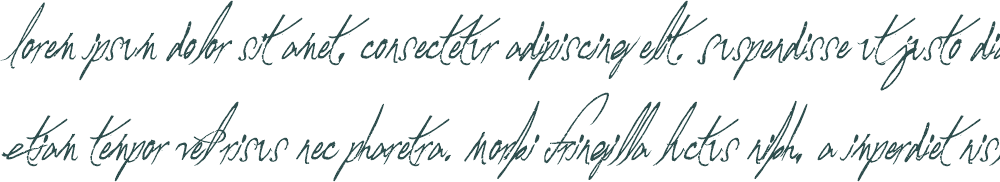 lorem ipsum dolor sit amet, consectetur adipiscing elit. suspendisse ut justo dia
etiam tempor vel risus nec pharetra. morbi fringilla luctus nibh, a imperdiet nis